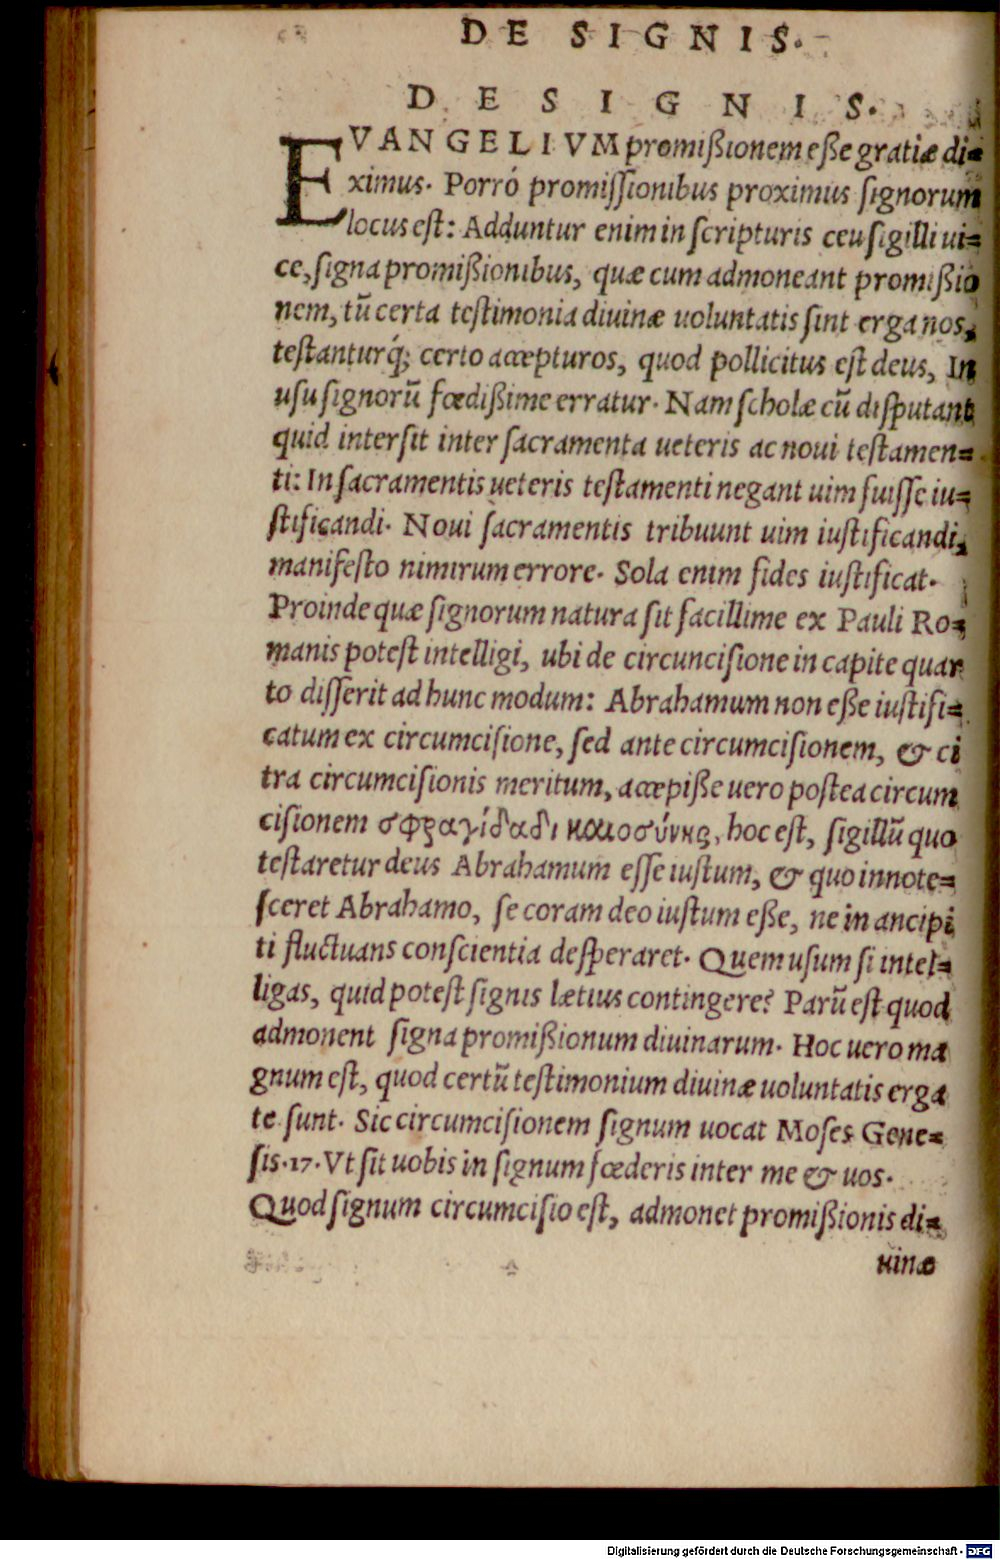 DE SIGNIS.
DE SIGNIS.
EVANGELIVM promißionem eße gratiæ di=
ximus. Porró promiſſionibus proximus ſignorum
locus eſt: Adduntur enim in ſcripturis ceu ſigilli ui=
ce, ſigna promißionibus, quæ cum admoneant promißio
nem, tū certa teſtimonia diuinæ uoluntatis ſint erga nos,
teſtanturq́; certo accepturos, quod pollicitus eſt deus, In
uſu ſignorū fœdißime erratur. Nam ſcholæ cū diſputant
quid interſit inter ſacramenta ueteris ac noui teſtamen=
ti: In ſacramentis ueteris teſtamenti negant uim fuiſſe iu=
ſtificandi. Noui ſacramentis tribuunt uim iuſtificandi,
manifeſto nimirum errore. Sola enim fides iuſtificat.
Proinde quæ ſignorum natura ſit facillime ex Pauli Ro=
manis poteſt intelligi, ubi de circunciſione in capite quar
to diſſerit ad hunc modum: Abrahamum non eße iuſtifi=
catum ex circumciſione, ſed ante circumciſionem, & ci
tra circumciſionis meritum, accepiße uero poſtea circum
ciſionem σφραγίδα δικαιοσύνης, hoc eſt, ſigillū quo
teſtaretur deus Abrahamum eſſe iuſtum, & quo innote=
ſceret Abrahamo, ſe coram deo iuſtum eße, ne in ancipi
ti fluctuans conſcientia deſperaret. Quem uſum ſi intel=
ligas, quid poteſt ſignis lætius contingere? Parū eſt quod
admonent ſigna promißionum diuinarum. Hoc uero ma
gnum eſt, quod certū teſtimonium diuinæ uoluntatis erga
te ſunt. Sic circumciſionem ſignum uocat Moſes Gene=
ſis.17. Vt ſit uobis in ſignum fœderis inter me & uos.
Quod ſignum circumciſio eſt, admonet promißionis di=
uinæ
Digitalisierung gefördert durch die Deutsche Forschungsgemeinschaft - DFG